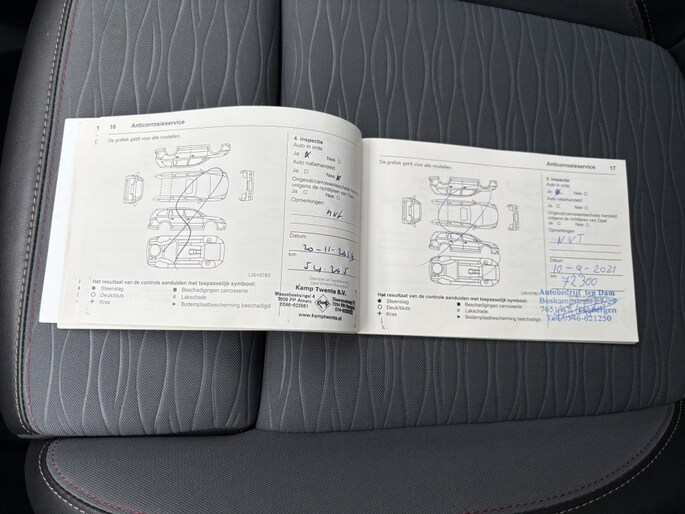 1
16 Anticorrosieservice
De grafiek geldt voor alle modellen.
4. inspectie
Auto in orde
Ja Nee
Auto nabehandeld
Ja Nee
volgens de richtlijnen van Opel
Opmerkingen
NVT
Datum
km
Het resultaat van de controle aanduiden met toepasselijk symbool:
Steenslag
Deuk/buts
Kras
Beschadigingen carrosserie
# Lakschade
Bodemplaatbescherming beschadigd
Kamp Twente B.V.
www.kamptwente.nl
Anticorrosieservice 17
De grafiek geldt voor alle modellen.
5. inspectie
Auto in orde
Ja Nee
Auto nabehandeld
Ja Nee
Ongeval/carrosserieschade hersteld
volgens de richtlijnen van Opel
Opmerkingen
NVT
Datum
10-9-2021
km 72300
Het resultaat van de controle aanduiden met toepasselijk symbool:
Steenslag
Deuk/buts
Kras
Beschadigingen carrosserie
# Lakschade
Bodemplaatbescherming beschadigd
Autobedrijf ten Dam
Tel. 0546-621250